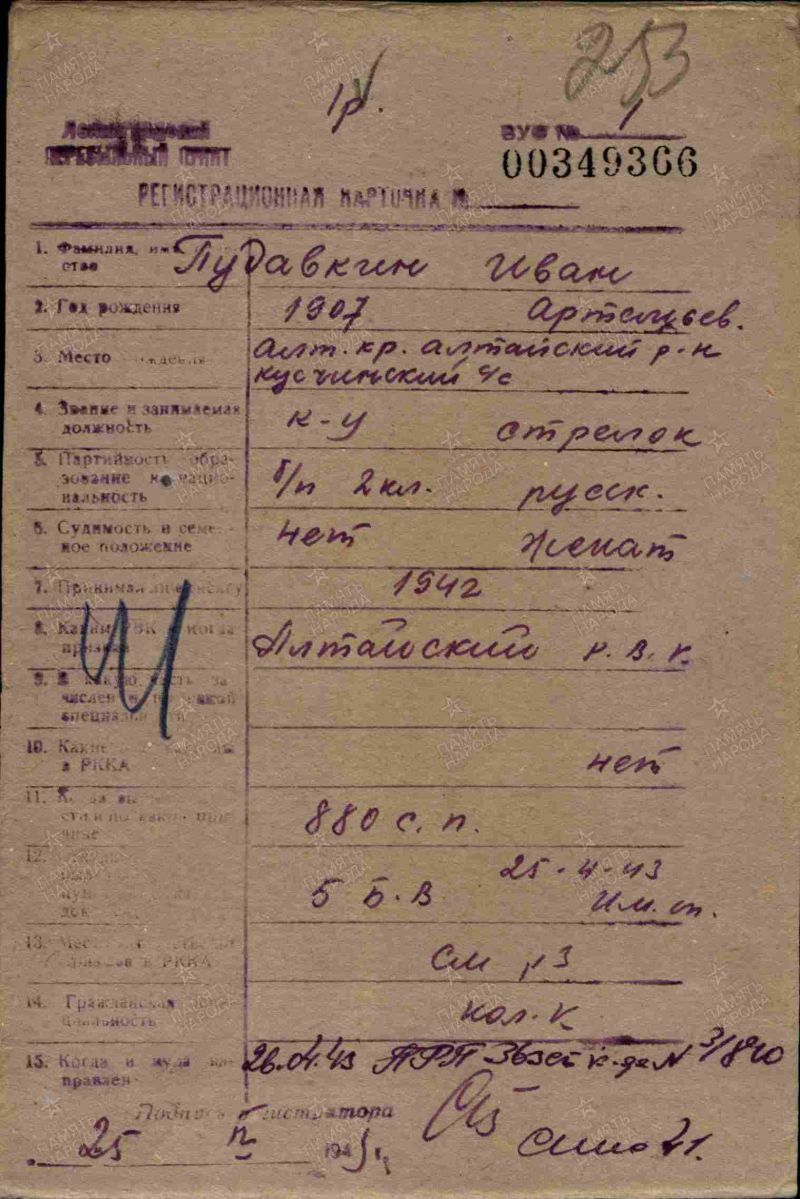 253
Ленинградский
ПЕРЕСЫЛЬНЫЙ ПУНКТ
ВУФ № 1
00349366
РЕГИСТРАЦИОННАЯ КАРТОЧКА №
1. Фамилия, имя
ство
Пудавкин Иван
2. Год рождения
1907 Артемьев.
3. Место рождения
Алт. кр. алтайский р-н
4. Звание и занимаемая
должность
к-ц стрелок
5. Партийность обра-
зование и нацио-
нальность
б/п 2 кл. русск.
6. Судимость и семей-
ное положение
нет женат
7. Принимал ли присягу
1942
8. Каким РВК и когда
призван
Алтайский р.в.к.
9. В какую часть за-
числен и по какой
специальности
10. Какие
в РККА
нет
11.
880 с.п.
12.
25-4-43
5 Б.В
13.
в РККА
см р 3
14. Гражданская специ-
альность
кол. к
15. Когда и куда на-
правлен
26.04.43 ПРП 36зсп к-да N 3/840
Подпись регистратора
25 194